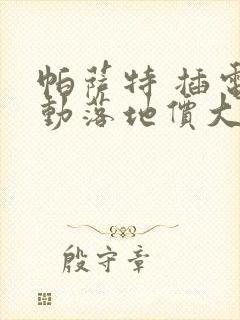 帕薩特 插電
動落地價大
殷守章